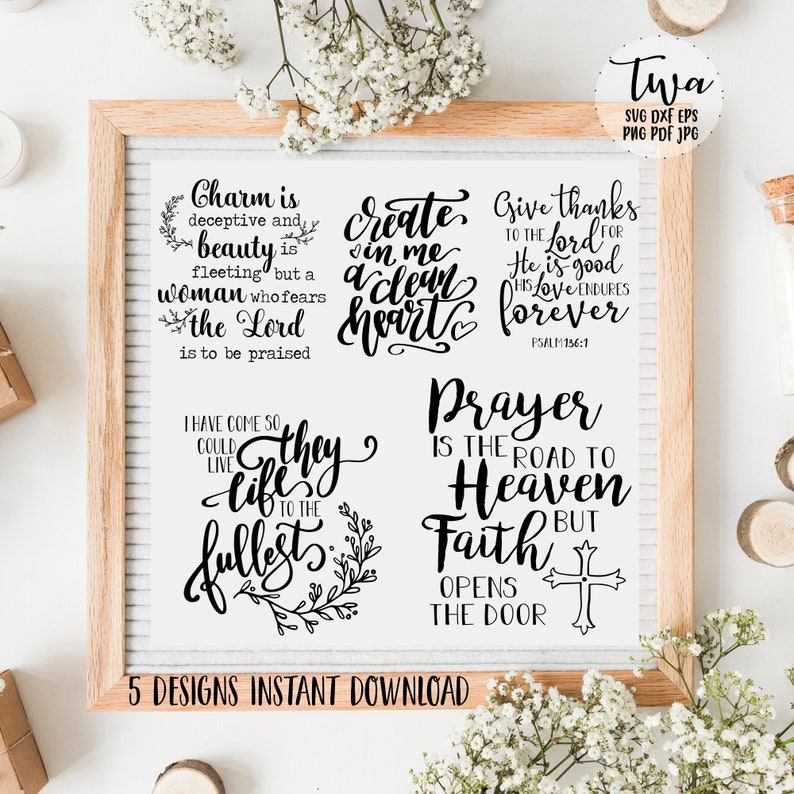 Twa
SVG DXF EPS
PNG PDF JPG
Charm is
deceptive and
beauty is
fleeting but a
woman who fears
the Lord
is to be praised
create
in me
a clean
heart
Give thanks
TO THE Lord FOR
He is good
HIS Love ENDURES
forever
PSALM 136:1
I HAVE COME SO
COULD they
LIVE
life TO THE
fullest
Prayer
IS THE ROAD TO
Heaven
BUT
Faith
OPENS
THE DOOR
5 DESIGNS INSTANT DOWNLOAD